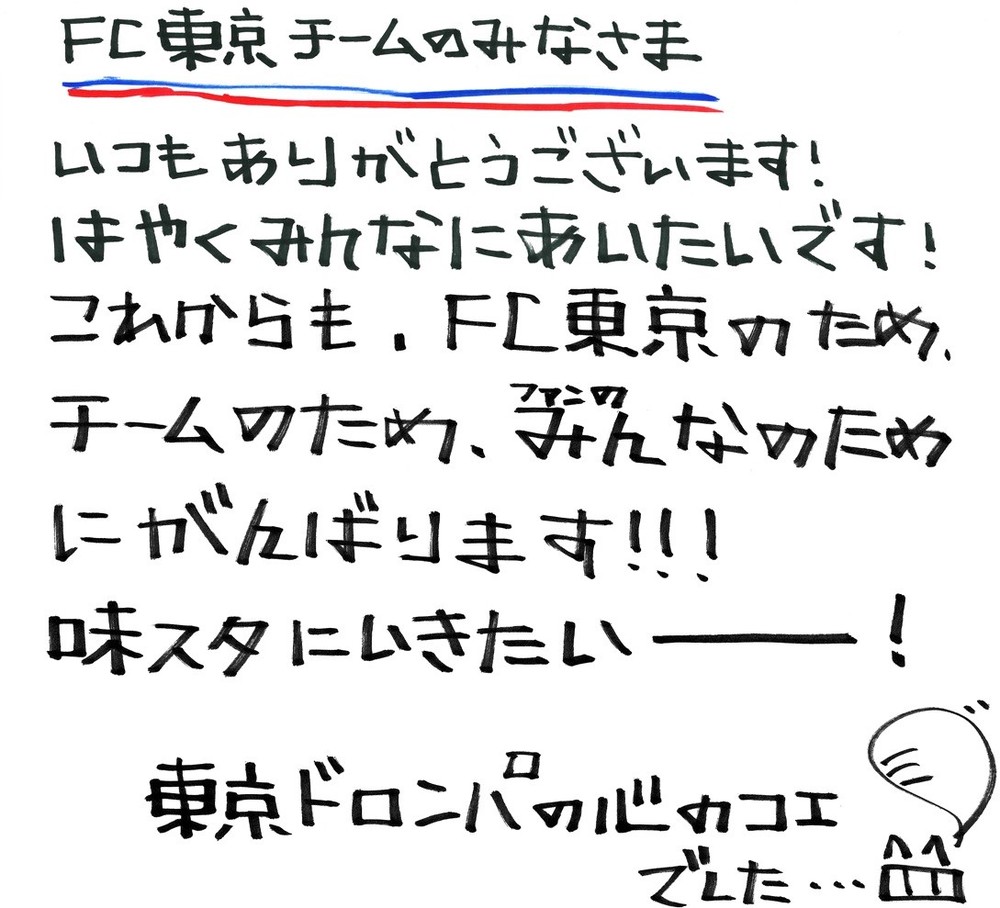 FC東京チームのみなさま
いつもありがとうございます!
はやくみんなにあいたいです!
これからも、FC東京のため、
ファンの
チームのため、みんなのため
にがんばります!!!
味スタにいきたい――!
東京ドロンパの心のコエ
でした…